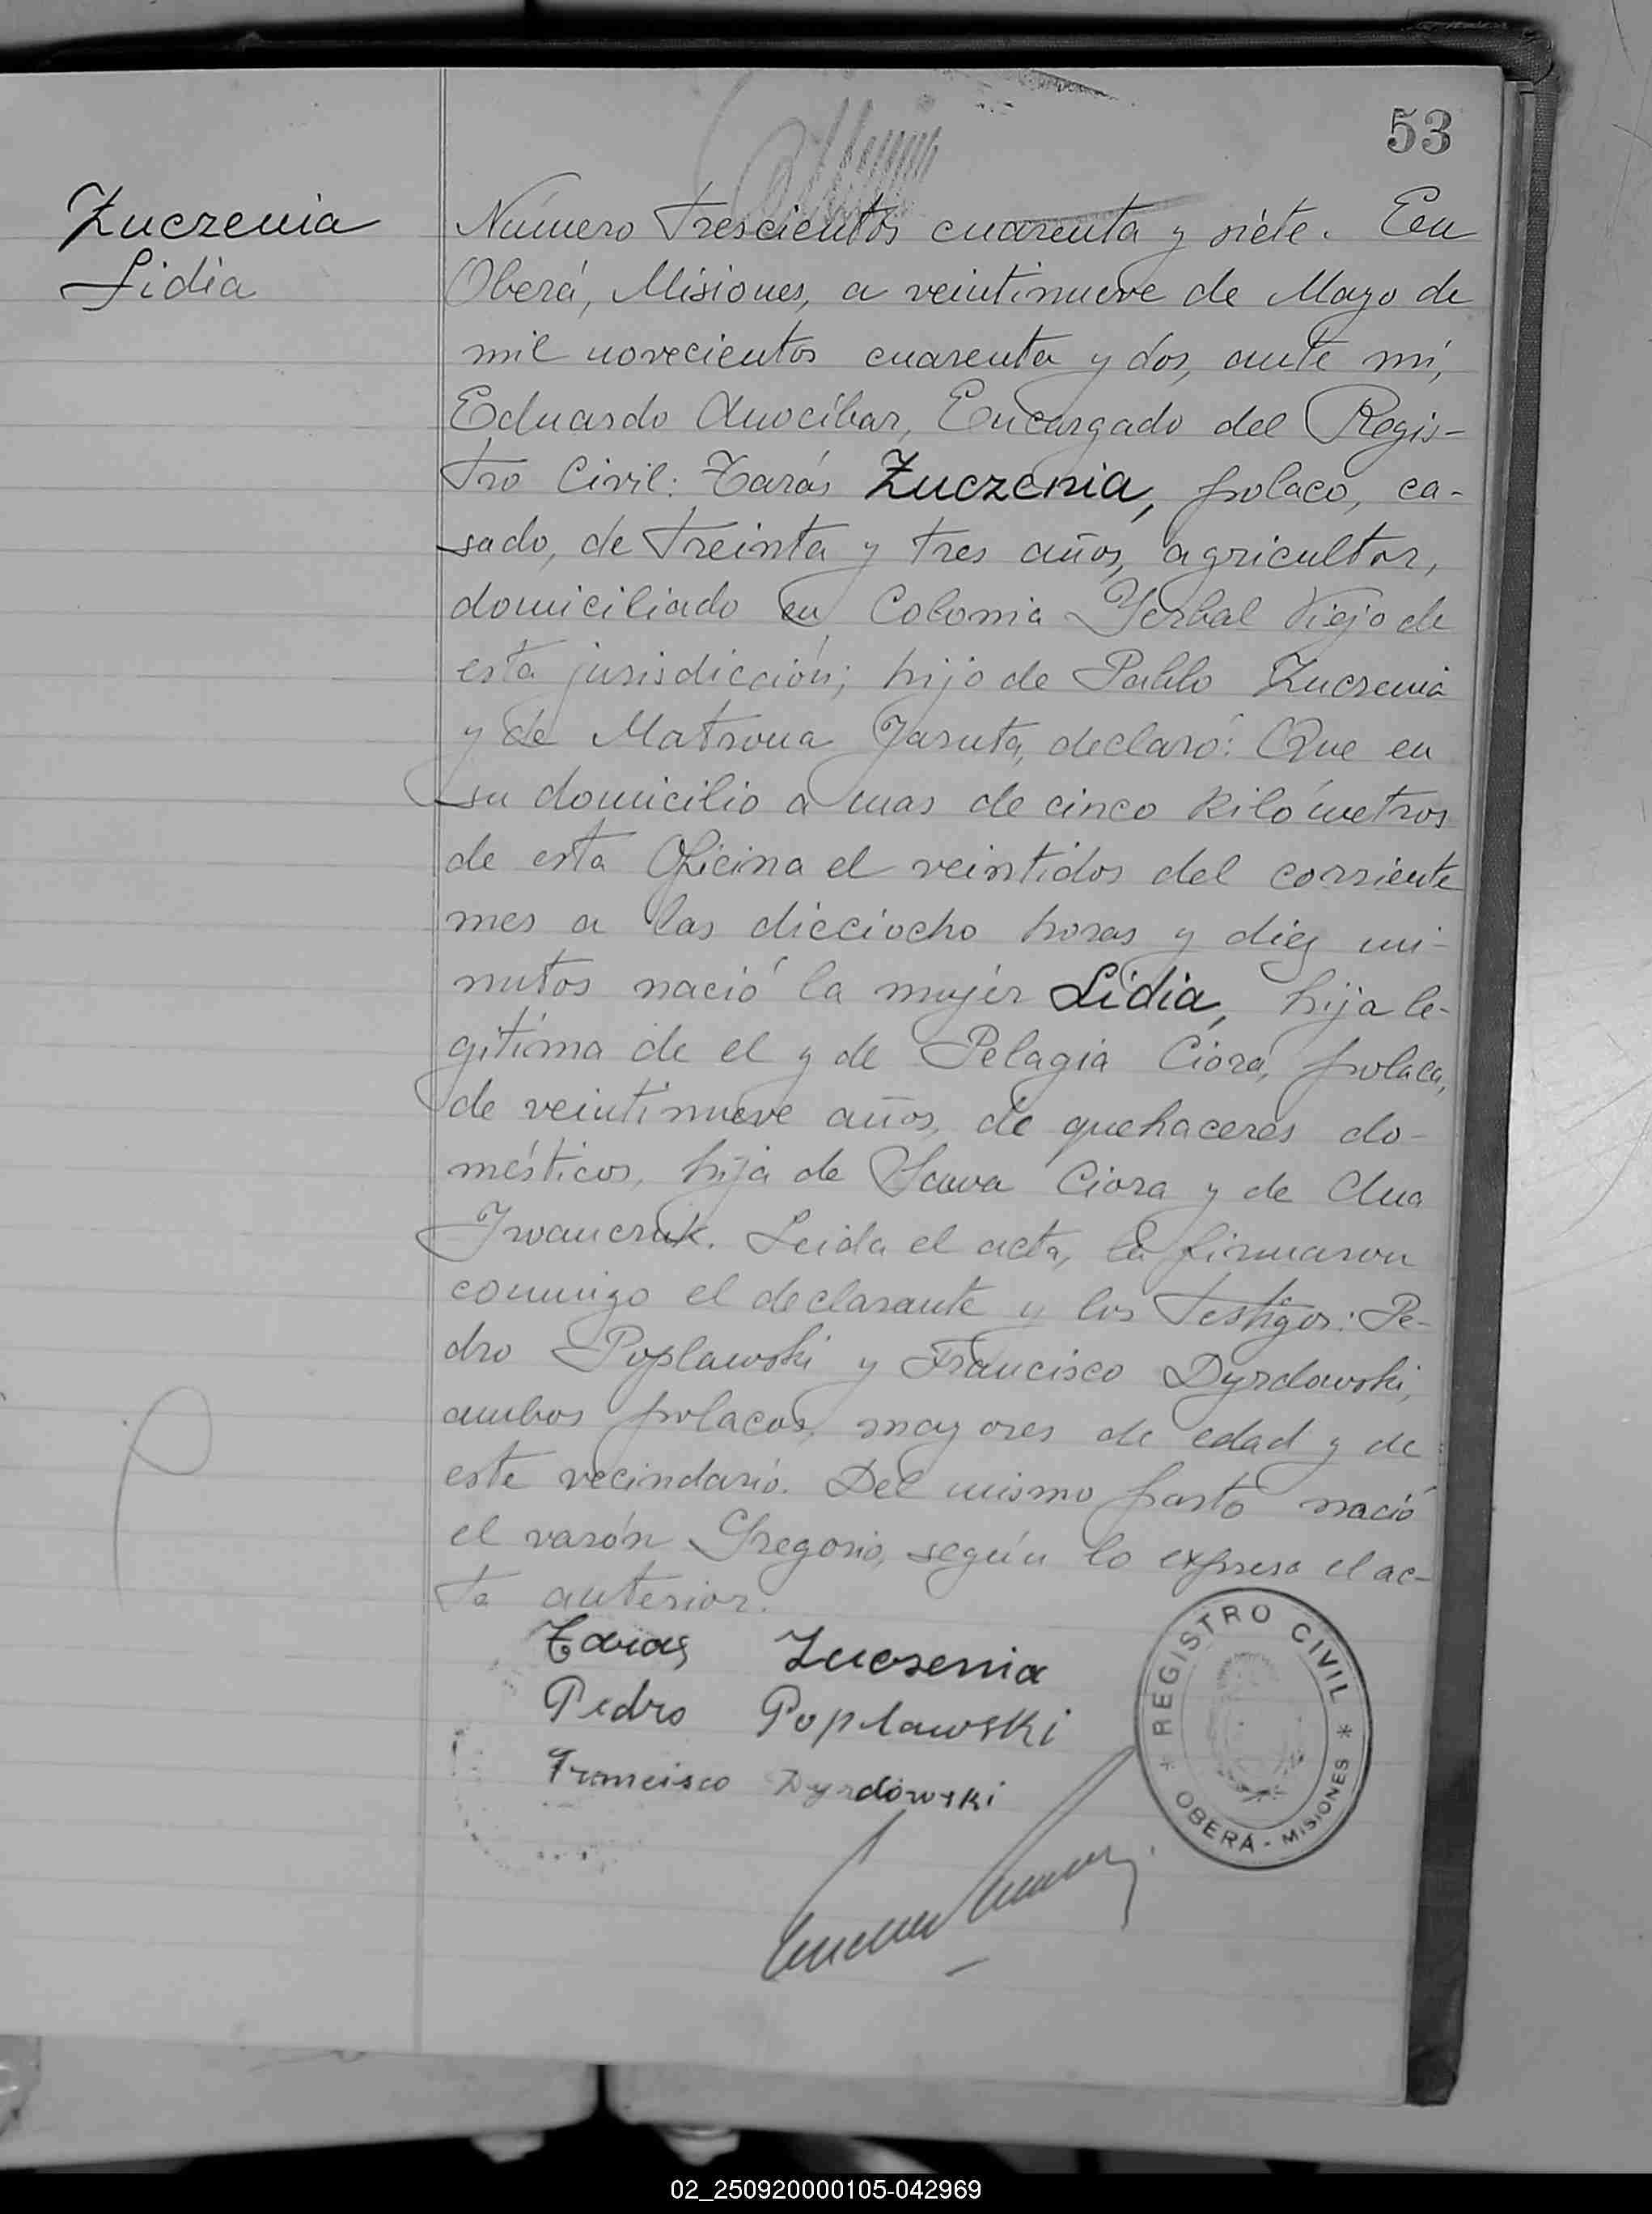 53
Zuczenia
Lidia
Número trescientos cuarenta y siete. En
Oberá, Misiones, a veintinueve de Mayo de
mil novecientos cuarenta y dos, ante mí,
Eduardo Anocíbar, Encargado del Regis-
tro Civil: Tarás Zuczenia, polaco, ca-
sado, de treinta y tres años, agricultor,
domiciliado en Colonia Yerbal Viejo de
esta jurisdicción; hijo de Pablo Zuczenia
y de Matrona Jaruta, declaró: Que en
su domicilio a mas de cinco kilómetros
de esta Oficina el veintidos del corriente
mes a las dieciocho horas y diez mi-
nutos nació la mujer Lidia, hija le-
gítima de el y de Pelagia Ciora, polaca,
de veintinueve años, de quehaceres do-
mésticos, hija de Sawa Ciora y de Ana
Iwanczuk. Leida el acta, la firmaron
conmigo el declarante y los testigos: Pe-
dro Poplawski y Francisco Dyrdowski,
ambos polacos, mayores de edad y de
este vecindario. Del mismo parto nació
el varón Gregorio, según lo expresa el ac-
ta anterior.
Taras Zuczenia
Pedro Poplawski
Francisco Dyrdowski
* REGISTRO CIVIL *
OBERÁ - MISIONES
02_250920000105-042969